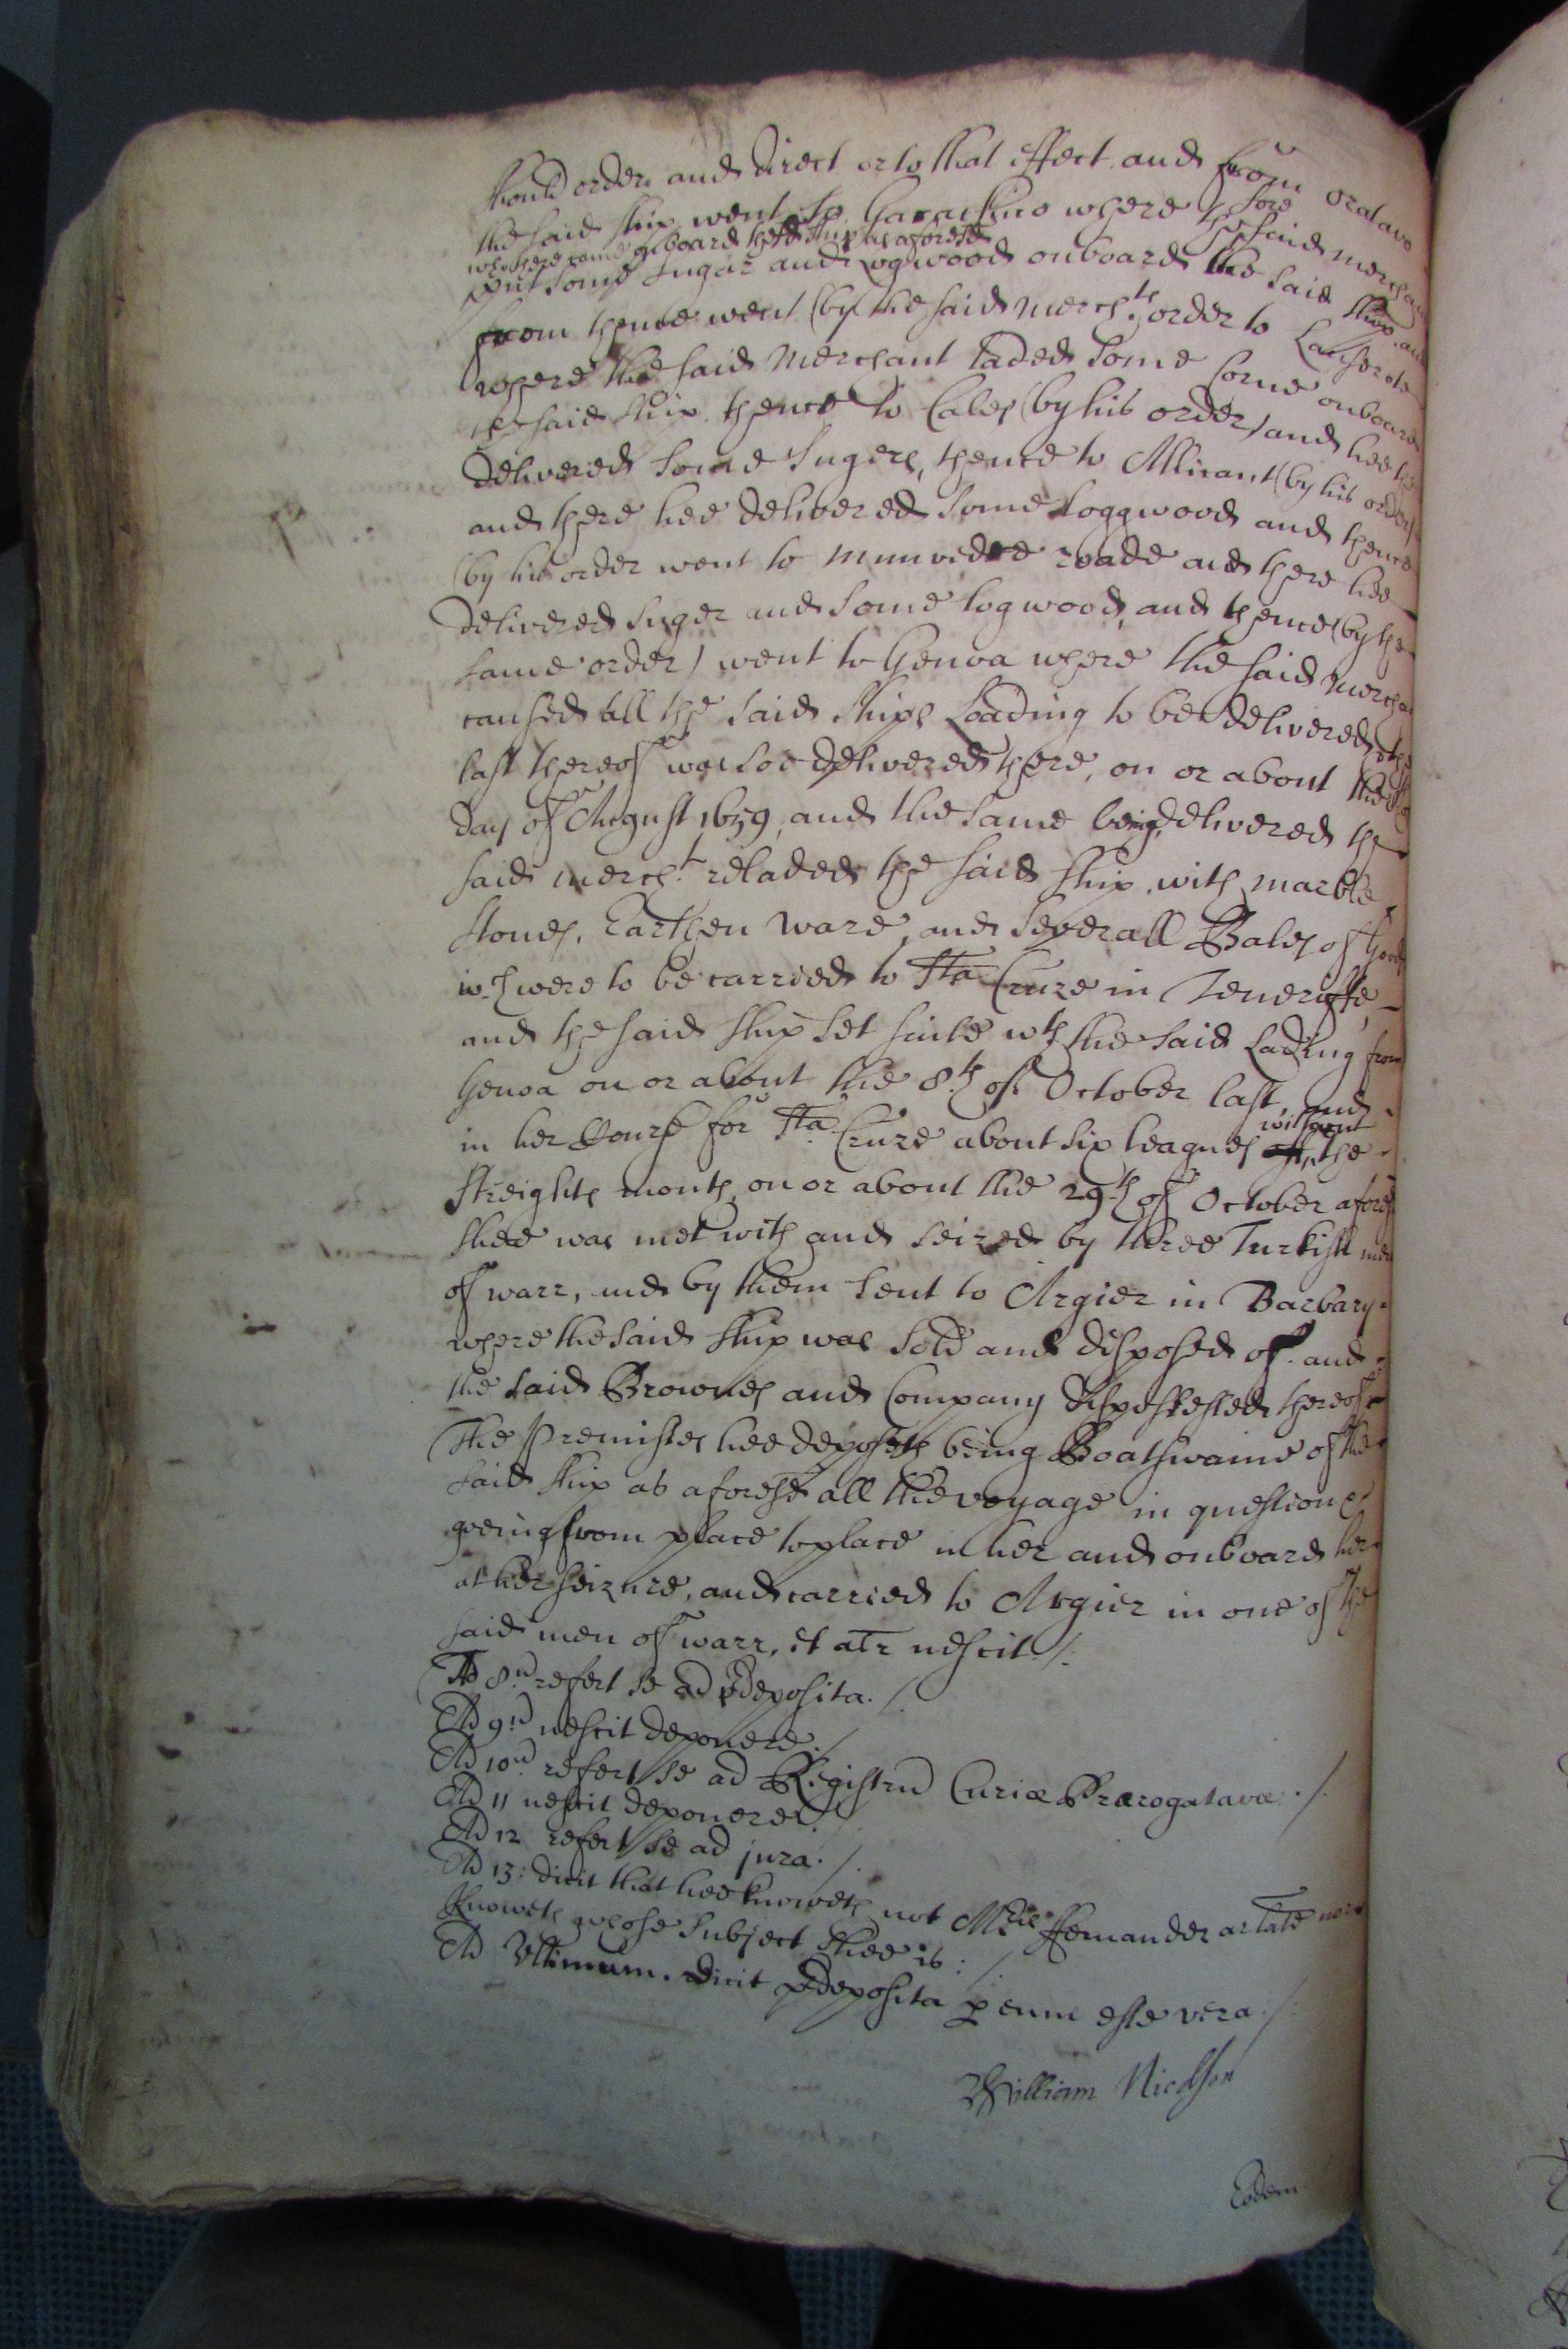 should order and direct or to that effect and from oratavo
the said ship went to Garachico where the said mercha
who there came onboard the sd ship as aforesd
put some sugar and Logwood onboard the said ship and
from thence went (by the said Merchts order to Lancerote
where the said Merchant laded some Corne onboard
the said ship thence to Cales (by his order) and hee there
delivered some Sugers, thence to Allicant (by his order)
and there hee delivered some loggwood and thence
(by his order went to Munvedre roade and there hee
delivered suger and some logwood, and thence (by the
same order) went to Genoa where the said Mercha
caused all the said ships Loading to be delivered & the
last thereof was soe delivered there, on or about the
day of August 1659, and the same being delivered the
said mercht reladed the said ship with marble
stones, Earthen ware, and severall Bales of Goods
wch were to be carried to Sta Cruze in Teneriffe,
and the said ship set saile wth the said Lading from
Genoa on or about the 8th of October last, and
in her Course for Sta Cruze about six leagues without the
streights mouth, on or about the 29th of October aforesd
shee was met with and seized by three Turkish men
of warr, and by them sent to Argier in Barbary
where the said ship was sold and disposed of and
the said Brownes and Company dispossessed thereof
The Premisses hee deposeth being Boatswaine of the
said ship as aforesd all the voyage in question &
goeing from place to place in her and onboard her
at her seizure, and carried to Argier in one of the
said men of warr, et alr nescit ./.
Ad 8um refert se ad predeposita. /
Ad 9um nescit deponere. /
Ad 10um refert se ad Registrum Curiæ Prærogatavæ ./.
Ad 11 nescit deponere. /
Ad 12 refert se ad jura. /.
Ad 13: dicit that hee knoweth not Marie Fernander arlate nor
Knoweth whose subject shee is : /
Ad Ultimum. dicit predeposita per eum esse vera. /
William Nickson
Eodem